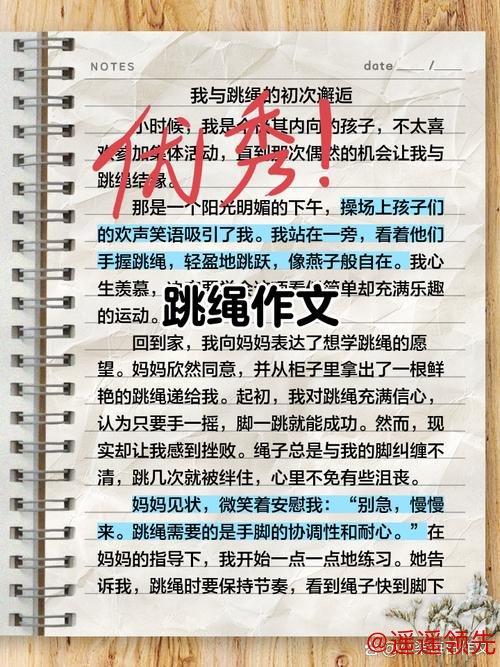 NOTES
date ____ / ____
我与跳绳的初次邂逅
小时候，我是个 其内向的孩子，不太喜
欢参加集体活动，直到那次偶然的机会让我与
跳绳结缘。
优秀！
那是一个阳光明媚的下午，操场上孩子们
的欢声笑语吸引了我。我站在一旁，看着他们
手握跳绳，轻盈地跳跃，像燕子般自在。我心
生羡慕，
简单却充满乐趣
的运动。
跳绳作文
回到家，我向妈妈表达了想学跳绳的愿
望。妈妈欣然同意，并从柜子里拿出了一根鲜
艳的跳绳递给我。起初，我对跳绳充满信心，
认为只要手一摇，脚一跳就能成功。然而，现
实却让我感到挫败。绳子总是与我的脚纠缠不
清，跳几次就被绊住，心里不免有些沮丧。
妈妈见状，微笑着安慰我：“别急，慢慢
来。跳绳需要的是手脚的协调性和耐心。”在
妈妈的指导下，我开始一点一点地练习。她告
诉我，跳绳时要保持节奏，看到绳子快到脚下
@遥遥领先